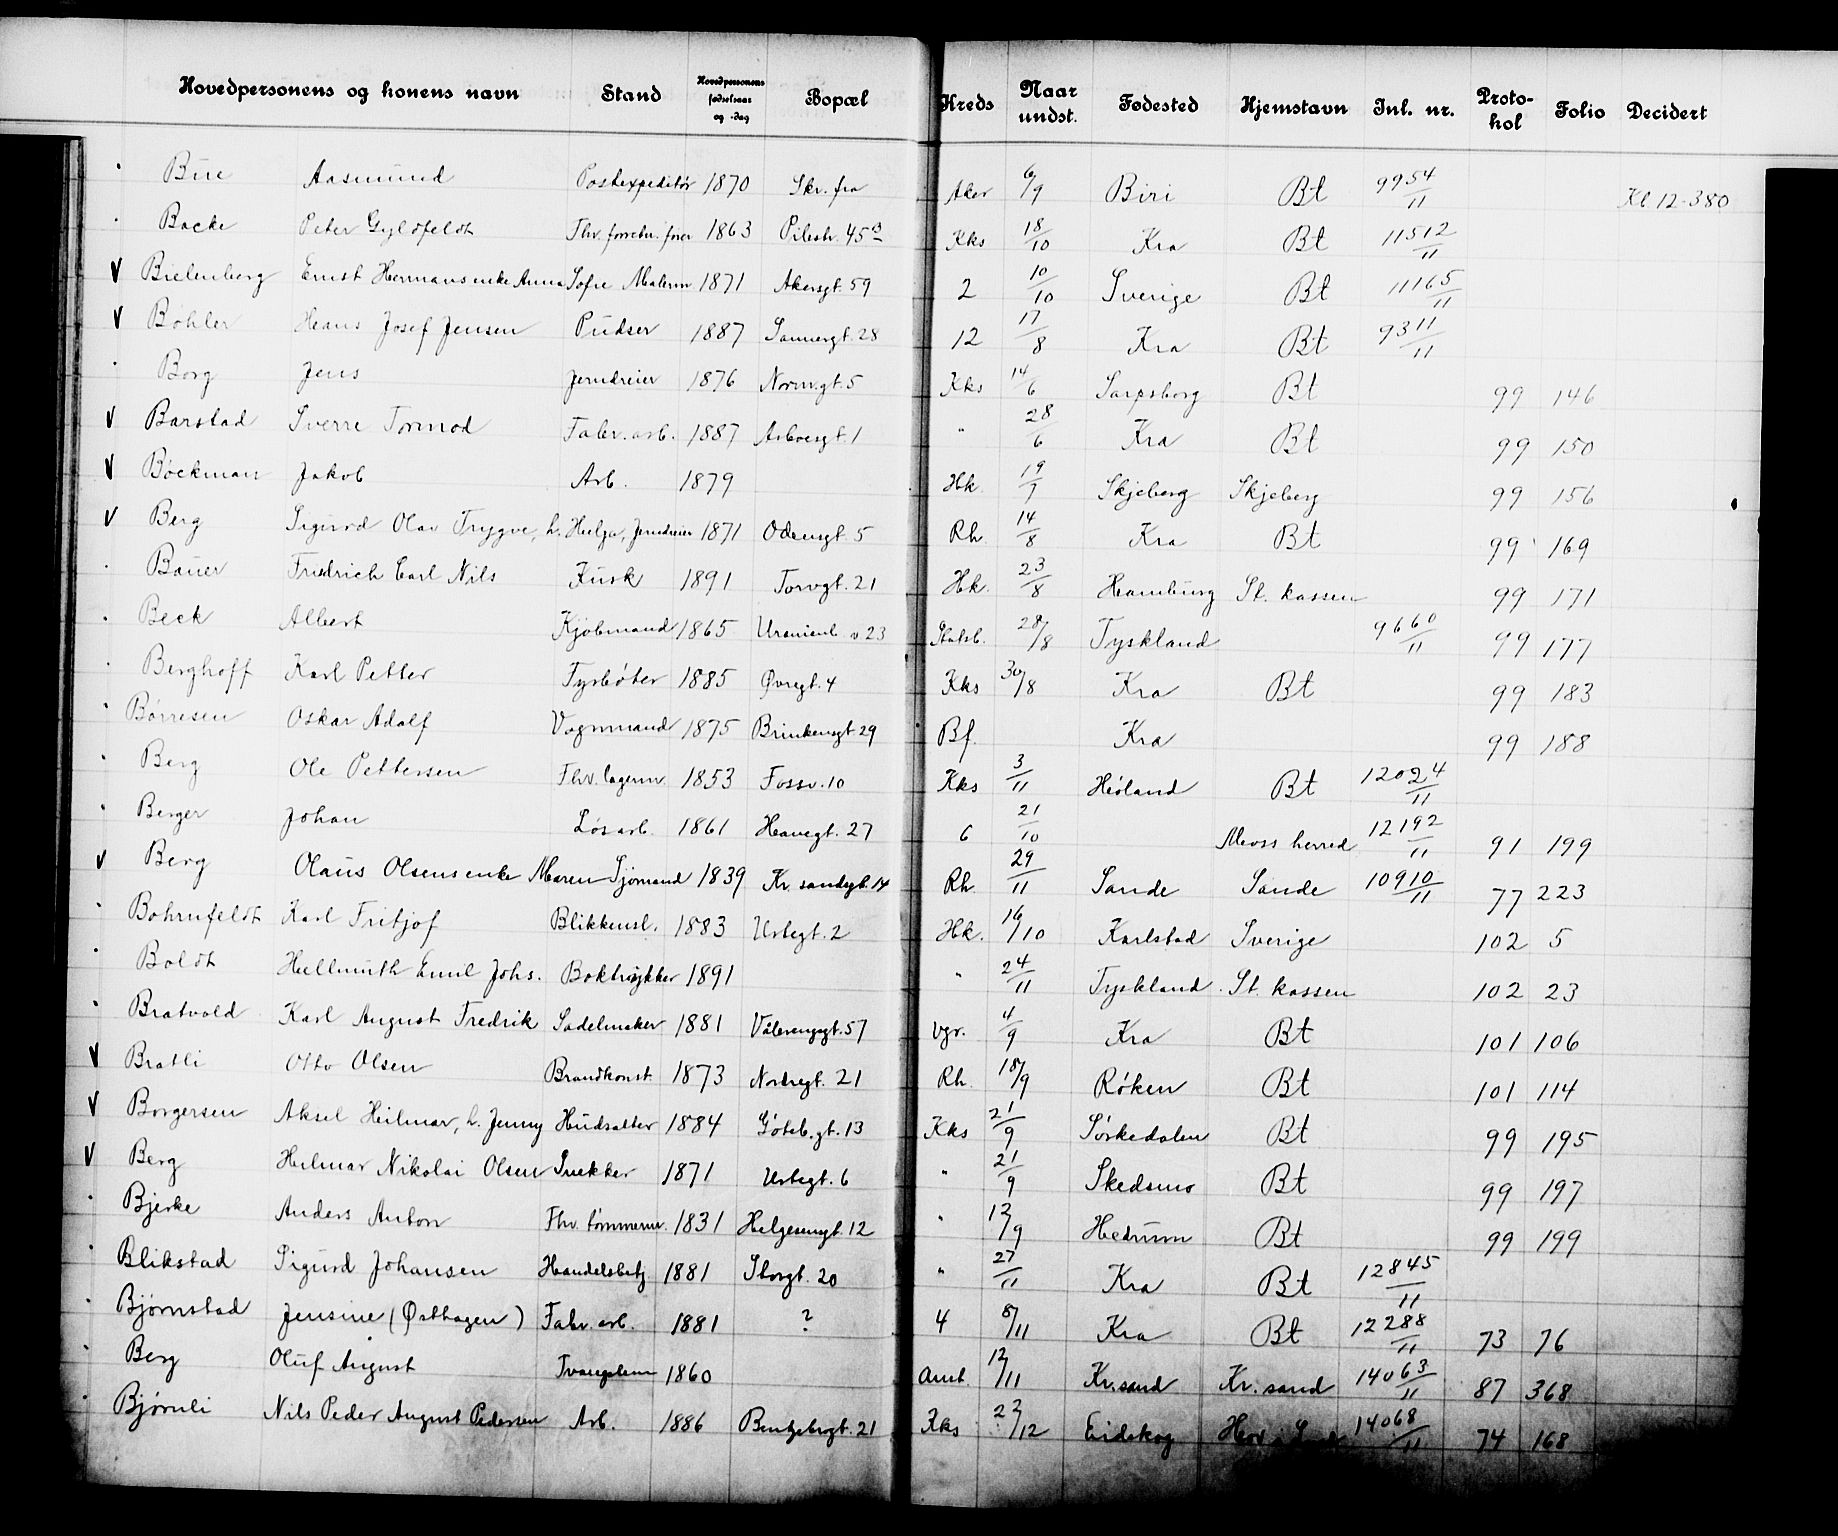 Hovedpersonens og konens navn Stand Hovedpersonens fødselsaar og -dag Bopæl Kreds Naar undst. Fødested Hjemstavn Inl. nr. Protokol Folio Decidert
Bue Aasmund Postexpeditør 1870 Skr. fra Aker 6/9 Biri Bt 9954/11 Kl 12-380
Backe Peter Gyldfeldt Fhv. forretn. fører 1863 Pilestr. 45 B Kks 18/10 Kra Bt 11512/11
V Bielenberg Ernst Hermansenke Anna Sofie Malerm 1871 Akersgt. 59 2 10/10 Sverige Bt 11165/11
V Bøhler Hans Josef Jensen Pudser 1887 Sannergt. 28 12 17/8 Kra Bt 9311/11
Borg Jens Jerndreier 1876 Norm.gt. 5 Kks 14/6 Sarpsborg Bt 99 146
V Barstad Sverre Tormod Fabr. arb. 1887 Asbvesgt. 1 " 28/6 Kra Bt 99 150
V Bøckman Jakob Arb. 1879 Hk. 19/7 Skjeberg Skjeberg 99 156
V Berg Sigurd Olav Trygve, h. Helga, Jerndreier 1871 Odensgt. 5 Rh. 14/8 Kra Bt 99 169
Bauer Friedrich Carl Nils Kusk 1891 Torvgt. 21 Hk. 23/8 Hamburg St. kassen 99 171
Beck Albert Kjøbmand 1865 Uranienb. v 23 Statsb. 28/8 Tyskland 9660/11 99 177
Berghoff Karl Petter Fyrbøter 1885 Øvregt. 4 Kks 30/8 Kra Bt 99 183
Børresen Oskar Adolf Vognmand 1875 Brinkengt 29 Bf. Kra 99 188
Berg Ole Pettersen Fhv. lagerm. 1853 Fossv. 10 Kks 3/11 Høland Bt 12024/11
Berger Johan Løsarb. 1861 Havegt. 27 6 21/10 Moss herred 12192/11 91 199
V Berg Olaus Olsensenke Maren Sjømand 1839 Kr. sandsgt. 14 Rh. 29/11 Sande Sande 10910/11 77 223
Bohrnfeldt Karl Fritjof Blikkensl. 1883 Urtegt. 2 Hk. 16/10 Karlstad Sverige 102 5
Boldt Hellmuth Emil Johs. Boktrykker 1891 " 24/11 Tyskland St. kassen 102 23
Bratvold Karl August Fredrik Sadelmaker 1881 Vålerengsgt. 57 Vgr. 4/9 Kra Bt 101 106
V Bratli Otto Olsen Brandkonst. 1873 Nordregt. 21 Rh. 18/9 Røken Bt 101 114
V Borgersen Aksel Heilmar, h. Jenny Hudsalter 1884 Göteb. gt. 13 Kks 21/9 Sørkedalen Bt 99 195
V Berg Hilmar Nikolai Olsen Snekker 1871 Urtegt. 6 " 21/9 Skedsmo Bt 99 197
Bjerke Anders Anton Fhv. tømmerm. 1831 Helgesensgt. 12 " 12/9 Hedrum Bt 99 199
Blikstad Sigurd Johansen Handelsbetj. 1881 Storgt. 20 " 27/11 Kra Bt 12845/11
Bjørnstad Jensine (Østhagen) Fabr. arb. 1881 ? 4 8/11 Kra Bt 12288/11 73 76
Berg Oluf August 1860 Amt. 12/11 Kr.sand Kr. sand 14063/11 87 368
Bjørnli Nils Peder August Pedersen Arb. 1886 Bentsebrogt. 21 Kks 22/12 Eidskog 14068/11 74 168